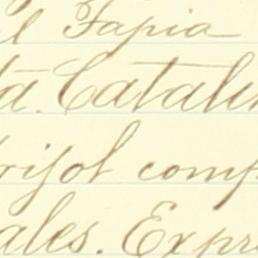 l Tapia
ta. Catalin
frisol comp
ales. Expre